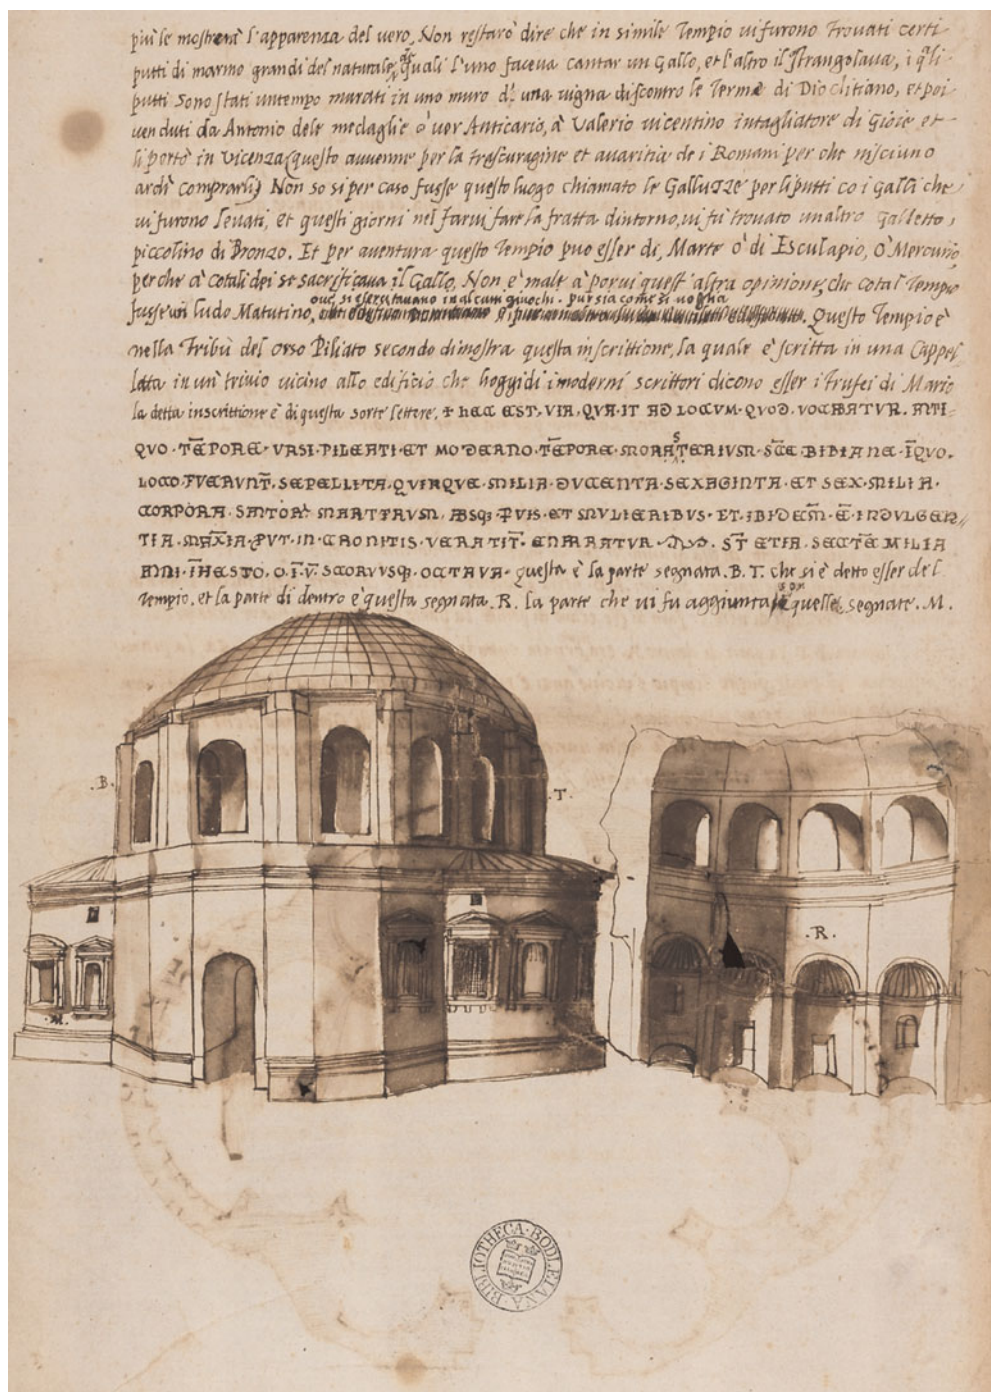 più le mostrerà l'apparenza del vero, Non restarò dire che in simile Tempio vi furono Trovati certi
putti di marmo grandi del naturale, de quali l'uno faceva cantar un Gallo, et l'altro il strangolava, i q̃li
putti sono stati un tempo murati in uno muro d'una vigna discontro le Terme di Dioclitiano, et poi
venduti da Antonio dele medaglie ò ver Anticario, à Valerio vicentino intagliatore di Gioie et
li portò in vicenza (questo avvenne per la trascuragine et avaritia de i Romani per che nisciuno
ardì comprarli) Non so si per caso fusse questo luogo chiamato le Galluzze per li putti co i Galli che
vi furono levati, et questi giorni nel farvi fare la fratta dintorno, vi fù trovato un altro Galletto,
piccolino di Bronzo. Et per aventura questo Tempio può esser di, Marte ò di Esculapio, ò Mercurio,
perche à cotali dei se sacrificava il Gallo, Non è male à porvi quest'altra opinione, che cotal Tempio
ove si esercitavano in alcuni giuochi. pur sia come si voglia
fusse un ludo Matutino, Questo Tempio è
nella Tribù del orso Piliato secondo dimostra questa inscrittione, la quale è scritta in una Cappel
letta in un trivio vicino allo edificio che hoggidì i moderni scrittori dicono esser i trufei di Mario
la detta inscrittione è di questa sorte lettere. + HEC EST. VIA. QVA. IT AD LOCVM. QVOD. VOCABATVR. ANTI-
QVO. TĒPORE. VRSI. PILEATI. ET MODERNO. TĒPORE. MONASTERIVM. SC̄E. BIBIANE. ĪQVO.
LOCO. FVERVNT̄. SEPELLITA. QVINQVE. MILIA. DVCENTA. SEXAGINTA. ET SEX. MILIA.
CORPORA. SANTOR. MARTIRVM. ABSQ; PVIS. ET MVLIERIBVS. ET. IBIDEM̄. Ē. INDVLGEN
TIA. MAXĪA. PVT. IN. CRONITIS. VERATIT̄. ENARRATVR. ST̄ ETIA. SECTĒ MILIA
ANNI. OCTAVA. questa è la parte segnata. B. T. che si è detto esser del
Tempio, et la parte di dentro è questa segnata. R. la parte che vi fu aggiunta son quelle segnate. M.
.B.
.T.
.R.
.M.
BIBLIOTHECA BODLEIANA